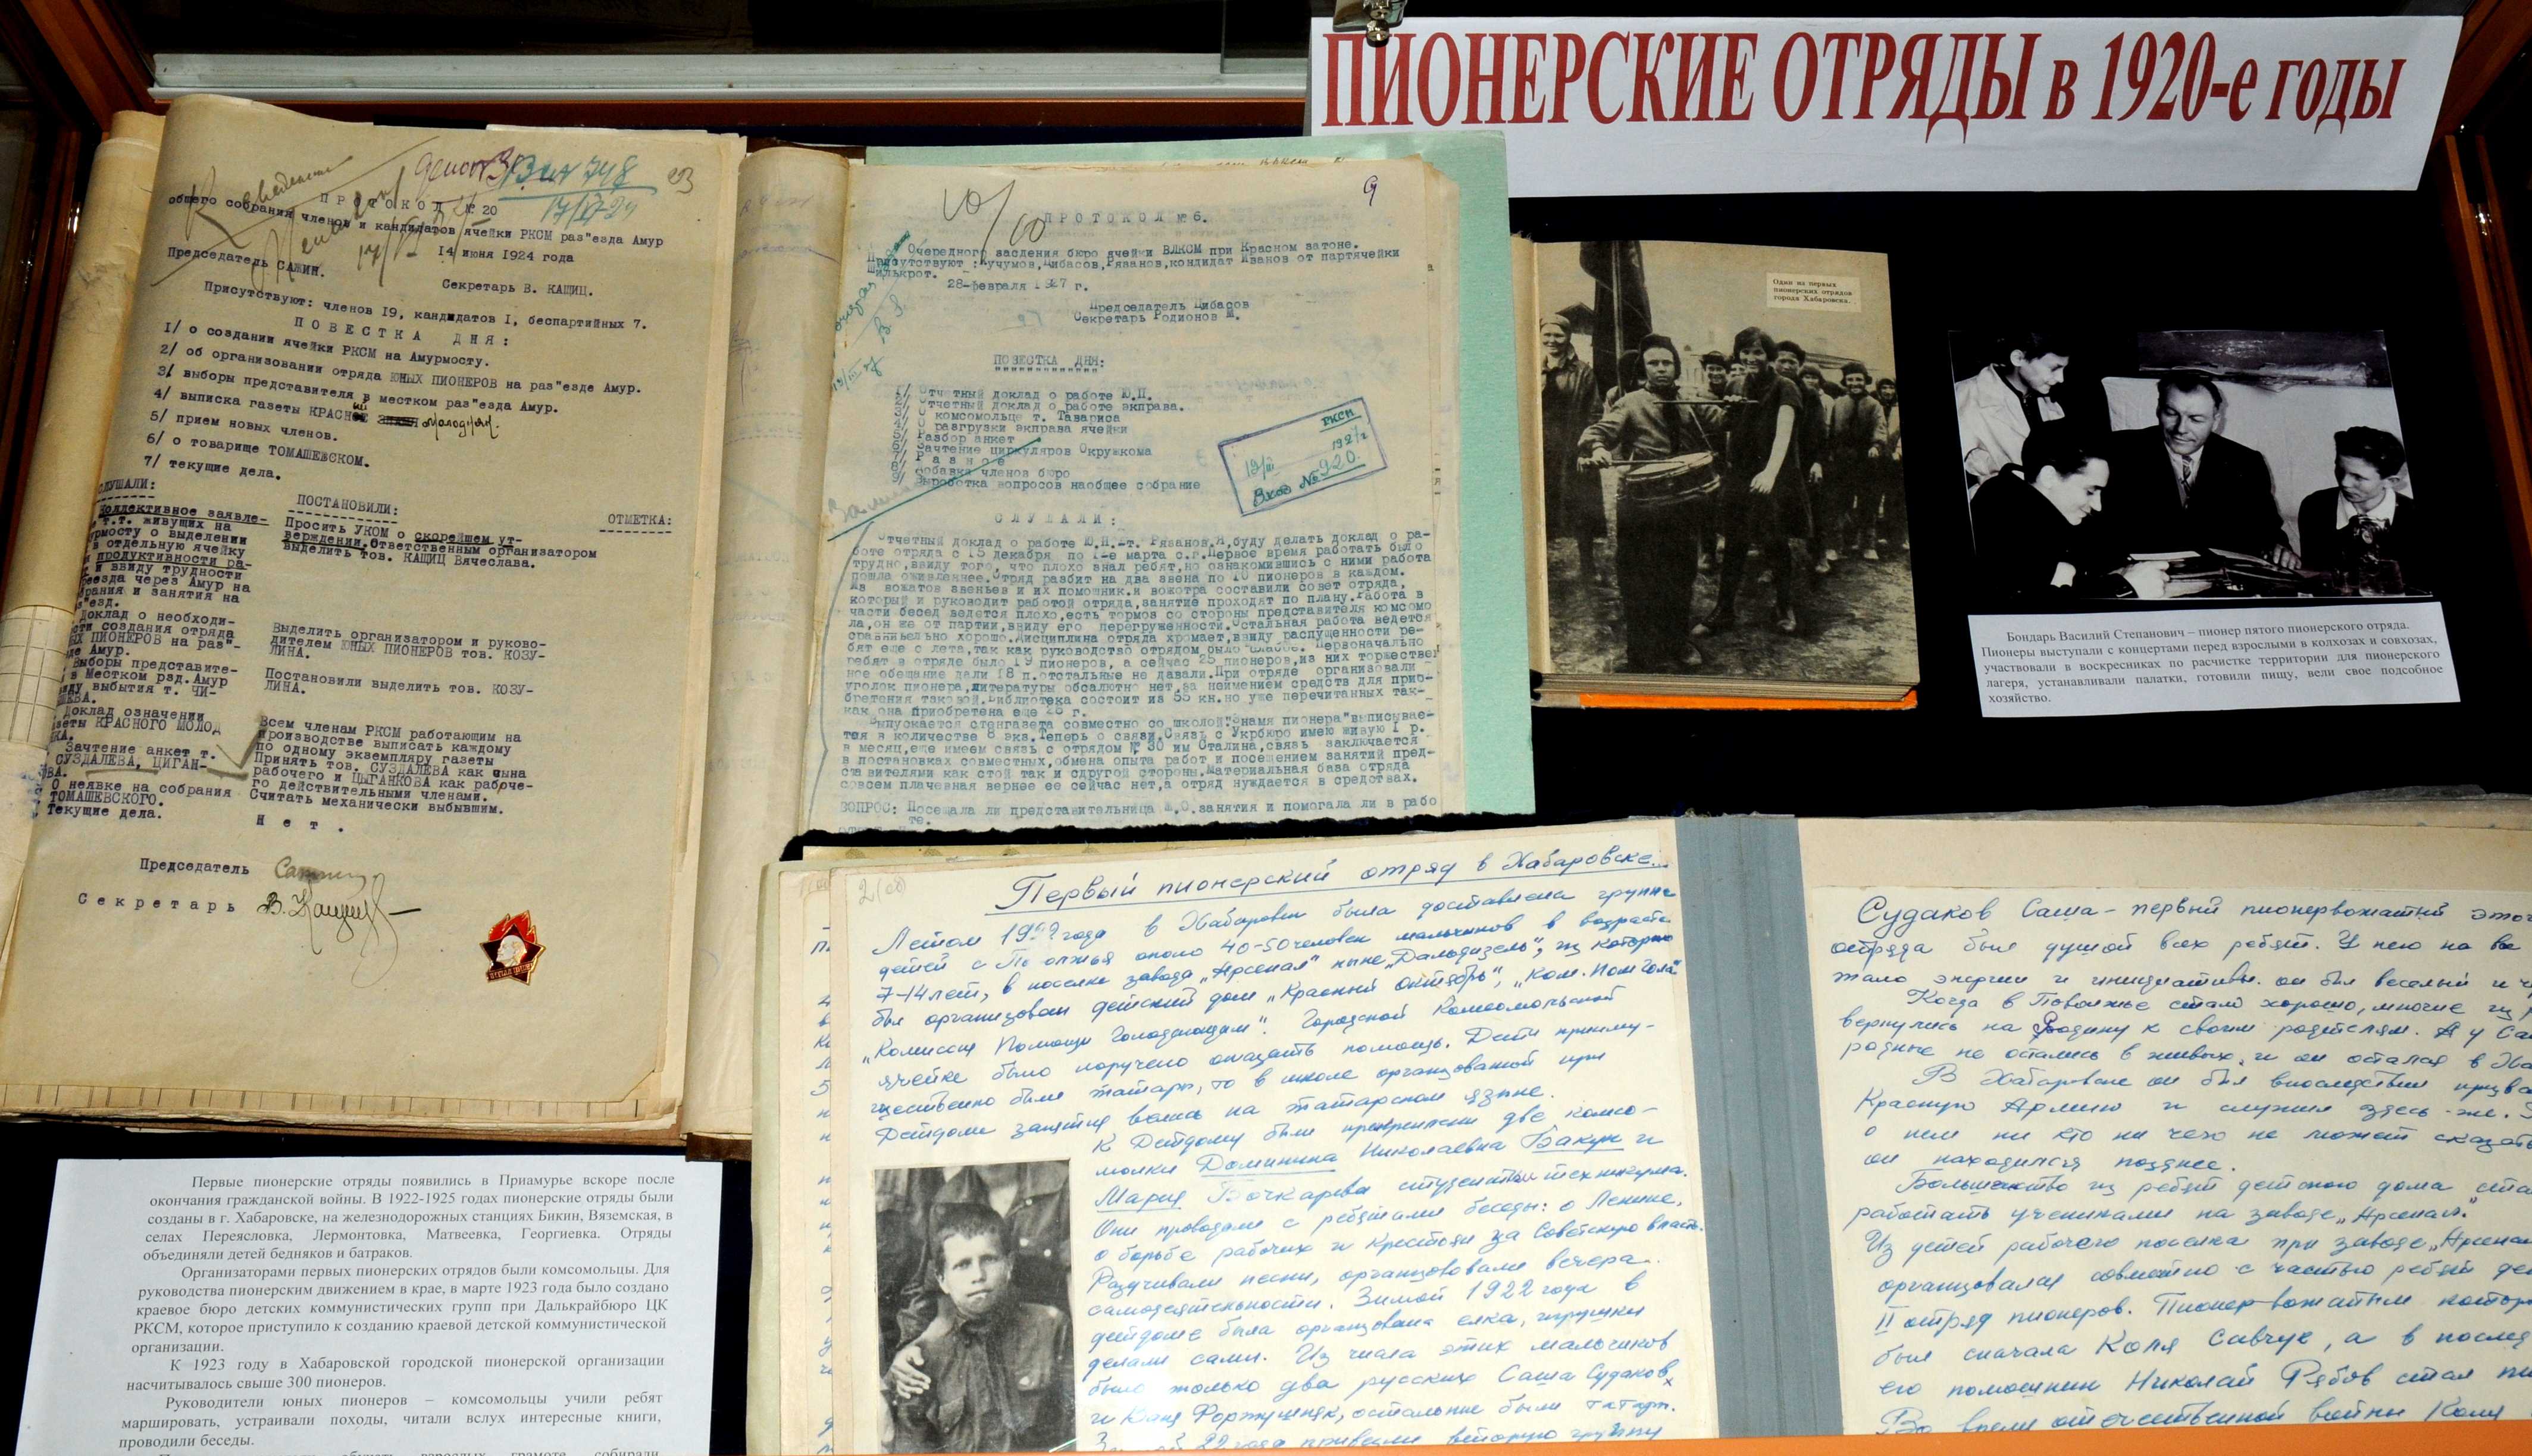 ПИОНЕРСКИЕ ОТРЯДЫ в 1920-е годы
ПРОТОКОЛ № 20
общего собрания членов и кандидатов ячейки РКСМ раз"езда Амур
14 июня 1924 года
Председатель САЖИН.
Секретарь В. КАЩИЦ.
Присутствуют: членов 19, кандидатов 1, беспартийных 7.
ПОВЕСТКА ДНЯ:
1/ о создании ячейки РКСМ на Амурмосту.
2/ об организовании отряда ЮНЫХ ПИОНЕРОВ на раз"езде Амур.
3/ выборы представителя в местком раз"езда Амур.
4/ выписка газеты КРАСН молодняк.
5/ прием новых членов.
6/ о товарище ТОМАШЕВСКОМ.
7/ текущие дела.
СЛУШАЛИ:
ПОСТАНОВИЛИ:
ОТМЕТКА:
Коллективное заявле-
т.т. живущих на
урмосту о выделении
в отдельную ячейку
продуктивности ра-
и ввиду трудности
реезда через Амур на
рания и занятия на
з"езд.
Просить УКОМ о скорейшем ут-
верждении.Ответственным организатором
выделить тов. КАЩИЦ Вячеслава.
Доклад о необходи-
сти создания отряда
ЫХ ПИОНЕРОВ на раз"-
де Амур.
Выделить организатором и руково-
дителем ЮНЫХ ПИОНЕРОВ тов. КОЗУ-
ЛИНА.
Выборы представите-
в Местком рзд.Амур
виду выбытия т. ЧИ-
ШЕВА.
Постановили выделить тов. КОЗУ-
ЛИНА.
Доклад означении
зеты КРАСНОГО МОЛОД
КА.
Всем членам РКСМ работающим на
производстве выписать каждому
по одному экземпляру газеты
Зачтение анкет т.
СУЗДАЛЕВА, ЦИГАН-
ВА.
Принять тов. СУЗДАЛЕВА как сына
рабочего и ЦЫГАНКОВА как рабоче-
го действительными членами.
О неявке на собрания
ТОМАШЕВСКОГО.
Считать механически выбывшим.
Текущие дела.
Нет.
Председатель
Секретарь В. Кащиц
ПРОТОКОЛ № 6.
Очередного заседния бюро ячейки ВЛКСМ при Красном затоне.
Присутствуют :Кучумов,Цибасов,Рязанов,кондидат Иванов от партячейки
Шилькрот.
28-февраля 1927 г.
Председатель Цибасов
Секретарь Родионов М.
ПОВЕСТКА ДНЯ:
1/ Отчетный доклад о работе Ю.П.
2/ Отчетный доклад о работе экправа.
3/ О комсомольце т. Тавариса
4/ О разгрузки экправа ячейки
5/ Разбор анкет
6/ Зачтение циркуляров Окружкома
7/ Разное
8/ Добавка членов бюро
9/ Выроботка вопросов наобщее собрание
РКСМ
Вход №920.
СЛУШАЛИ:
Отчетный доклад о работе Ю.П.-т. Рязанов.Я,буду делать доклад о ра-
боте отряда с 15 декабря по 1-е марта с.г.Первое время работать было
трудно,ввиду того, что плохо знал ребят,но ознакомившись с ними работа
пошла оживленнее.Отряд разбит на два звена по 10 пионеров в каждом.
Из вожатов звеньев и их помошник.и вожотра составили совет отряда,
который и руководит работой отряда,занятие проходят по плану.Работа в
части бесед ведется плохо,есть тормоз со стороны представителя комсомо
ла,он же от партии,ввиду его перегруженности.Остальная работа ведется
сравнительно хорошо.Дисциплина отряда хромает,ввиду распущенности ре-
бят еще с лета,так как руководство отрядом было слабое. Первоначально
ребят в отряде было 19 пионеров, а сейчас 25 пионеров,из них торжествен
ное обещание дали 18 п.отстальные не давали.При отряде организовали
уголок пионера,литературы обсалютно нет,за неимением средств для прио-
бретения таковой.Библиотека состоит из 55 кн.но уже перечитанных так-
как она приобретена еще 26 г.
Выпускается стенгазета совместно со школой."Знамя пионера"выписывае-
тся в количестве 8 экз.Теперь о связи.Связь с Укрбюро имею живую 1 р.
в месяц,еще имеем связь с отрядом № 30 им Сталина,связь заключается
в постановках совместных,обмена опыта работ и посещением занятий пред-
ставителями как стой так и сдругой стороны.Материальная база отряда
совсем плачевная вернее ее сейчас нет,а отряд нуждается в средствах.
ВОПРОС: Посещала ли представительница занятия и помогала ли в рабо
те.
Один из первых
пионерских отрядов
города Хабаровска.
Бондарь Василий Степанович – пионер пятого пионерского отряда.
Пионеры выступали с концертами перед взрослыми в колхозах и совхозах,
участвовали в воскресниках по расчистке территории для пионерского
лагеря, устанавливали палатки, готовили пищу, вели свое подсобное
хозяйство.
Первый пионерский отряд в Хабаровске.
Летом 1922 года в Хабаровск была доставлена группа
детей с Поволжья около 40-50 человек мальчиков в возрасте
7-14 лет, в поселке завода „Арсенал" ныне „Дальдизель", из которых
был организован детский дом „Красный Октябрь", „Ком. Пом Гола"
„Комиссия Помощи Голодающим". Городской Комсомольской
ячейке было поручено оказать помощь. Дети преиму-
щественно были татары, то в школе организованой при
Детдоме занятия велись на татарском языке.
К Детдому были прикреплены две комсо-
молки Доминика Николаевна Бакун и
Мария Бочкарева студентки техникума.
Они проводили с ребятами беседы: о Ленине,
о борьбе рабочих и крестьян за Советскую власть.
Разучивали песни, организовали вечера
самодеятельности. Зимой 1922 года в
детдоме была организована елка, игрушки
делали сами. Из числа этих мальчиков
было только два русских Саша Судаков
и Ваня остальные были татары.
22 года привезли вторую группу
Судаков Саша – первый пионервожатый этого
отряда был душой всех ребят. У него на все
энергии и инициативы. он был веселый и
Когда в Поволжье стало хорошо, многие из
вернулись на Родину к своим родителям. А у Са
родные не остались в живых, и он остался в Ха
В Хабаровске он был впоследствии призва
Красную Армию и служил здесь-же.
о нем ни кто ни чего не может сказать
он находился позднее.
Большинство из ребят детского дома ста
работать учениками на заводе „Арсенал".
Из детей рабочего поселка при заводе „Арсенал
организовался совместно с частью ребят де
II отряд пионеров. Пионер-вожатым котор
был сначала Коля Савчук, а в послед
его помощник Николай Рябов стал
Во время отечественной войны Коля
Первые пионерские отряды появились в Приамурье вскоре после
окончания гражданской войны. В 1922-1925 годах пионерские отряды были
созданы в г. Хабаровске, на железнодорожных станциях Бикин, Вяземская, в
селах Переясловка, Лермонтовка, Матвеевка, Георгиевка. Отряды
объединяли детей бедняков и батраков.
Организаторами первых пионерских отрядов были комсомольцы. Для
руководства пионерским движением в крае, в марте 1923 года было создано
краевое бюро детских коммунистических групп при Далькрайбюро ЦК
РКСМ, которое приступило к созданию краевой детской коммунистической
организации.
К 1923 году в Хабаровской городской пионерской организации
насчитывалось свыше 300 пионеров.
Руководители юных пионеров – комсомольцы учили ребят
маршировать, устраивали походы, читали вслух интересные книги,
проводили беседы.